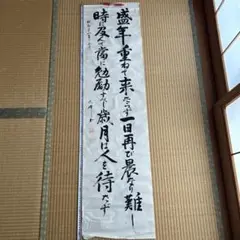 盛年重ねて来たらず一日再び晨なり難し
時に及んで当に勉励すべし歳月は人を待たず